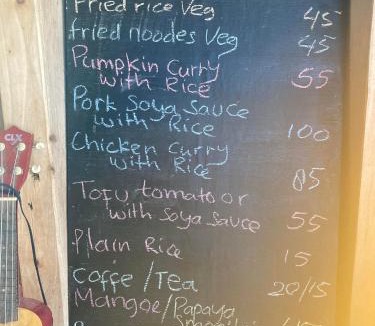 Fried rice Veg 45
fried noodes Veg 45
Pumpkin Curry
with Rice 55
Pork Soya Sauce
with Rice 100
Chicken Curry
with Rice 85
Tofu tomato or
with Soya Sauce 55
Plain Rice 15
Coffe / Tea 20/15
Mangoe/Papaya
CLX